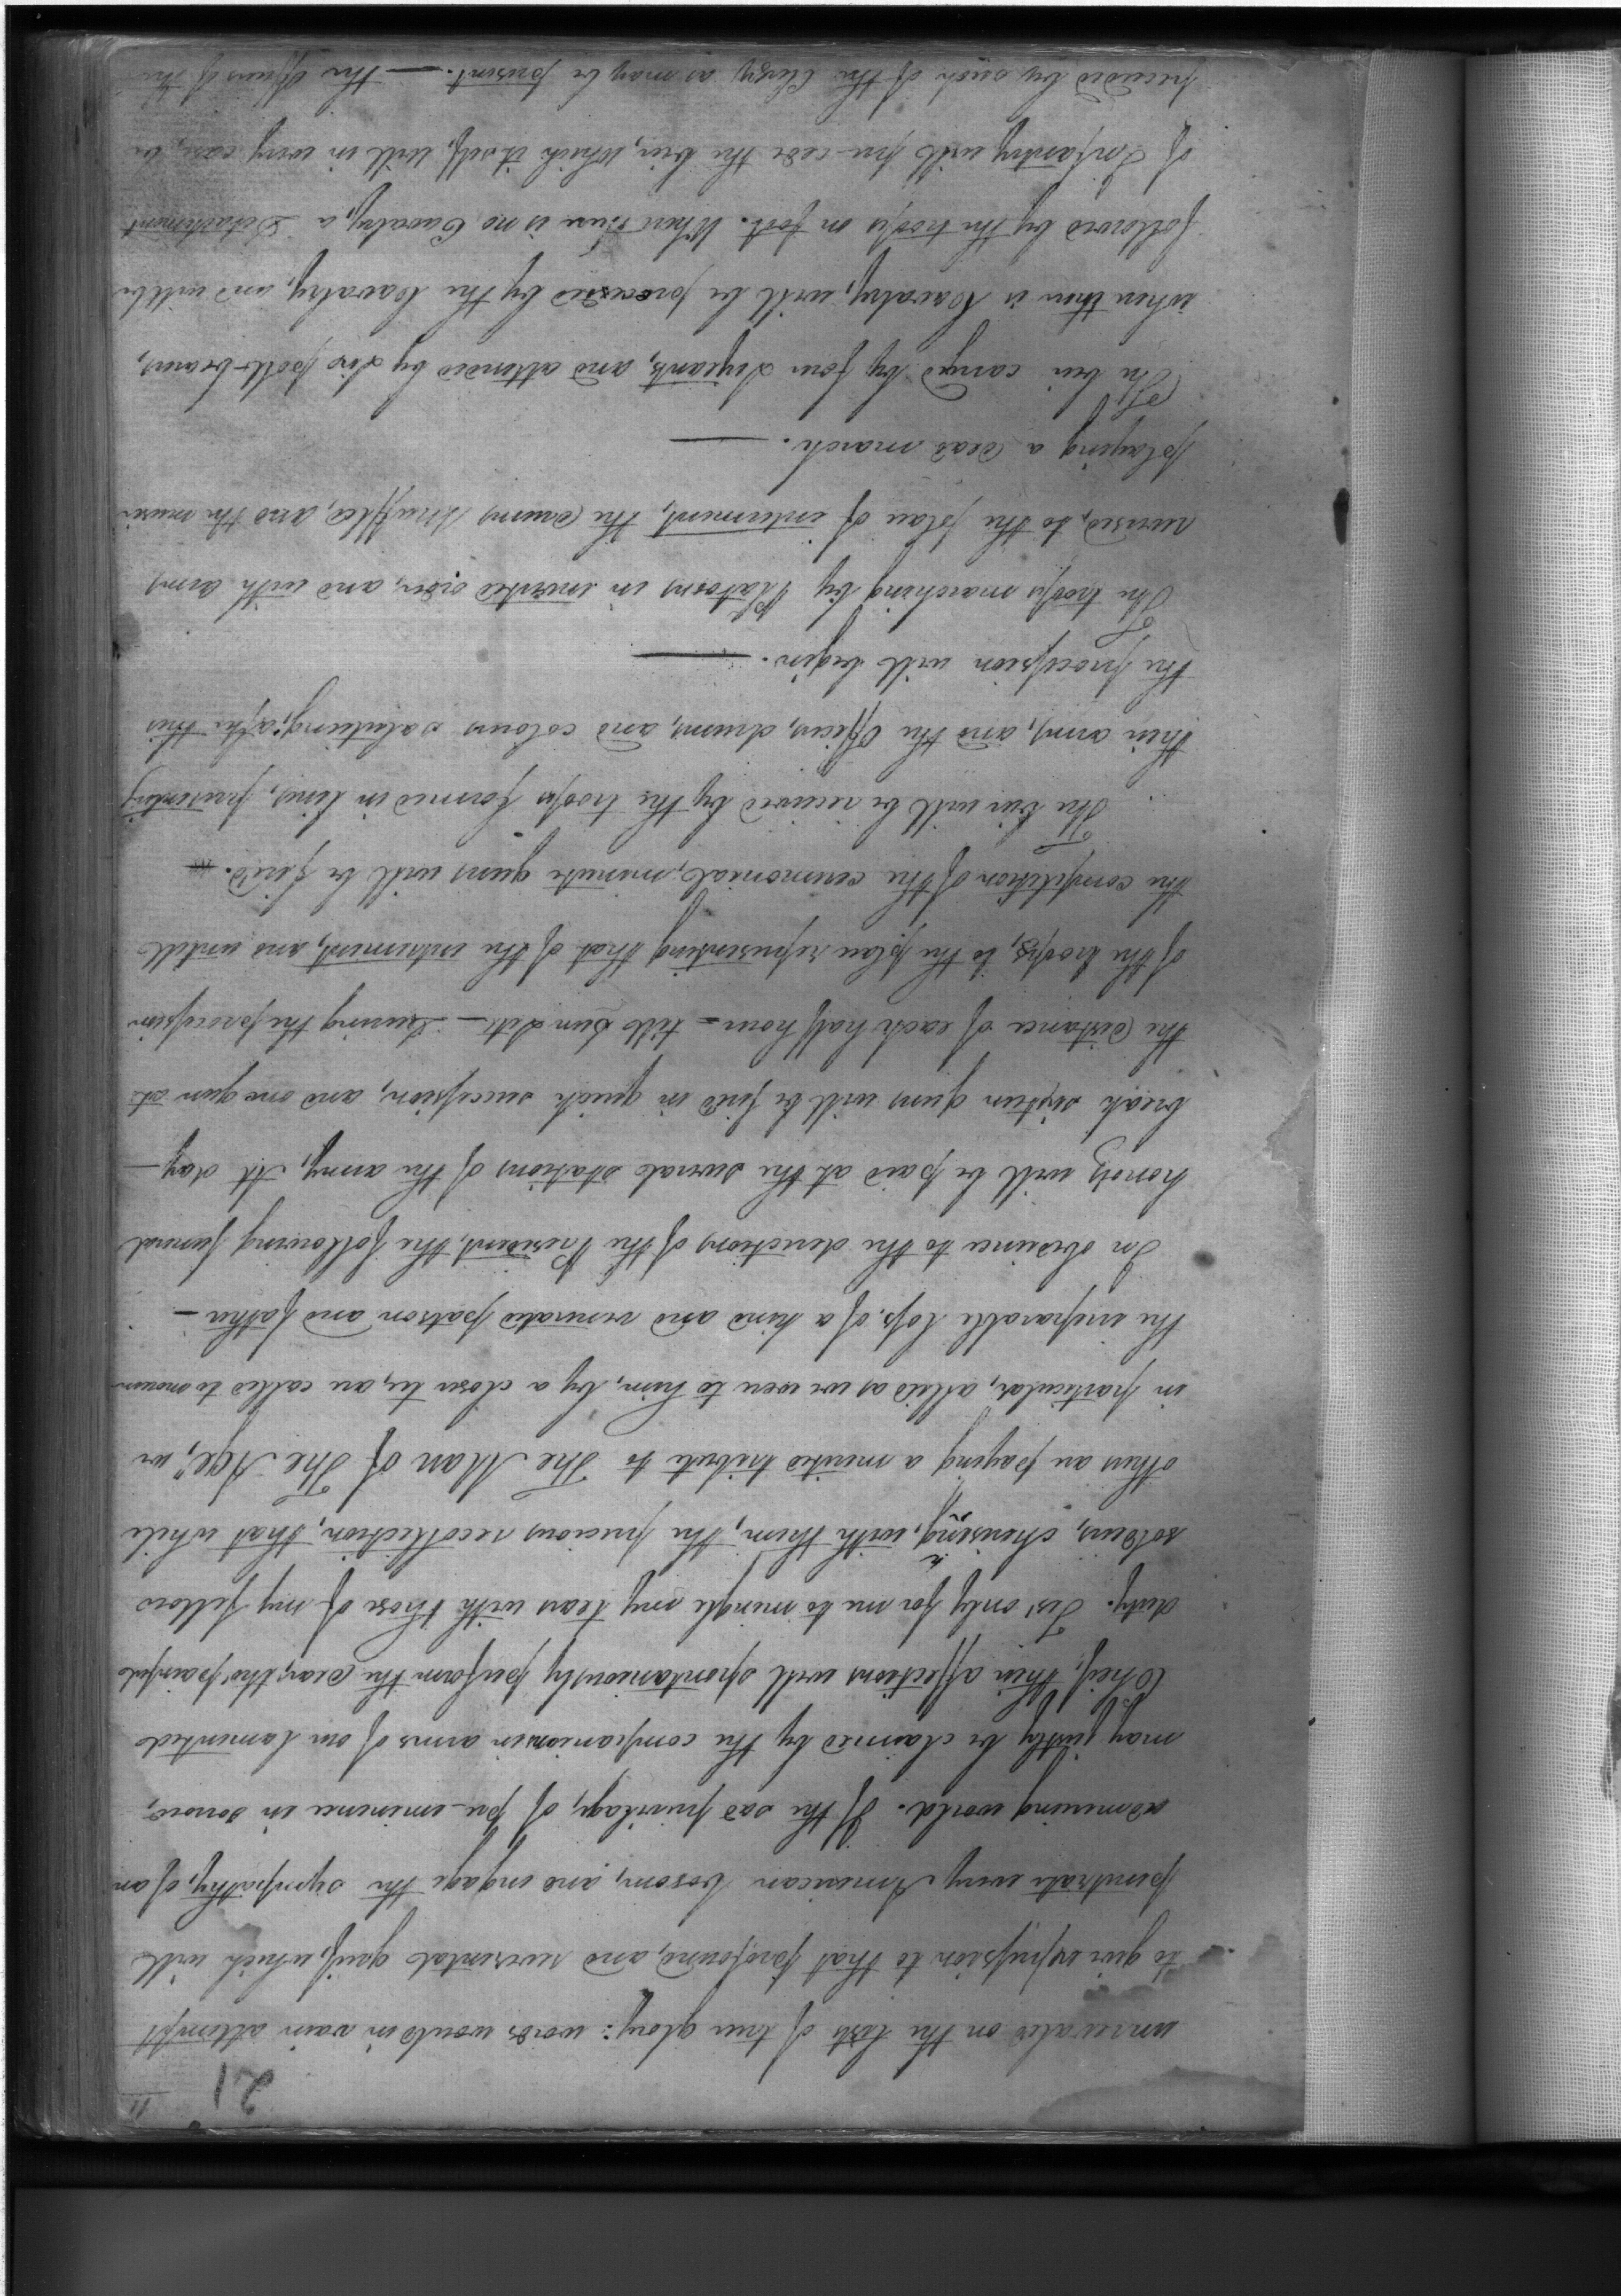 11
21
unrivaled on the lists of true glory: words would in vain attempt
to give expression to that profound, and reverential grief, which will
penetrate every American bosom, and engage the sympathy, of an
admiring world. If the sad privilage, of pre-eminence in sorrow,
may justly be claimed by the companions in arms of our lamented
Chief, their affections will spontaniously perform the dear, tho' painful
duty. Tis' only for me to mingle my tears with those of my fellow
soldiers, cherishing, with them, the precious recollection, that while
others are paying a merited tribute to "The Man of The Age", we
in particular, allied as we were to him, by a closer tie, are called to mourn
the irreparable loss, of a kind and venerated patron and father —
In obedience to the directions of the President, the following funeral
honors will be paid at the several stations of the army, At day —
break sixteen guns will be fired in quick succession, and one gun at
the distance of each half hour — till Sun Set — During the procession
of the troops, to the place representing that of the interment, and untill
the completion of the ceremonial, minute guns will be fired.
The bier will be received by the troops formed in line, presenting
their arms, and the officers, drums, and colours saluting; after this
the procession will begin. —
The troops marching by Platoons in inverted order, and with arms
reversed, to the place of interment, the drums muffled, and the music
playing a dead march. —
The bier carryed by four Serjeants, and attended by six pall-bearers,
when there is Cavalry, will be preceded by the Cavalry, and will be
followed by the troops on foot. Where there is no Cavalry, a Detachment
of Infantry will pre-cede the bier, Which itself, will in every case, be
preceded by such of the Clergy as may be present. — The officers of the